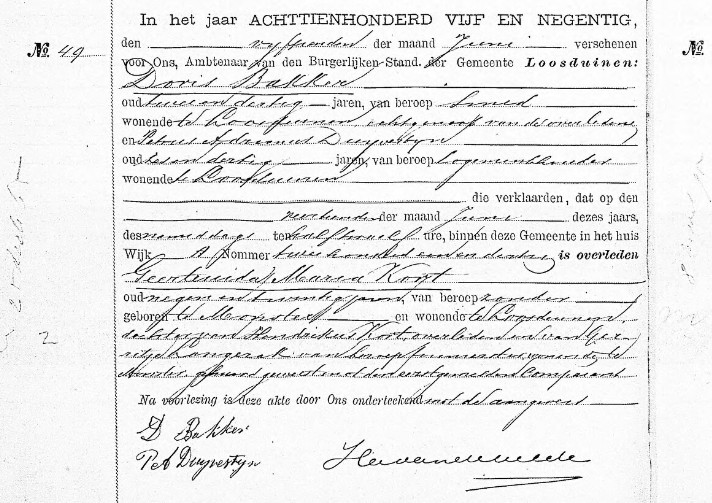 In het jaar ACHTTIENHONDERD VIJF EN NEGENTIG,
No. 49 den vyftienden der maand Juni verschenen No.
voor Ons, Ambtenaar van den Burgerlijken-Stand der Gemeente Loosduinen:
Doris Bakker
oud twee en dertig jaren, van beroep Smid
wonende te Loosduinen echtgenoot van de overledene
en Petrus Adrianus Duyvestyn
oud zes en dertig jaren, van beroep logementhouder
wonende te Loosduinen
die verklaarden, dat op den
der maand Juni dezes jaars,
des namiddags ten half twaalf ure, binnen deze Gemeente in het huis
Wijk A Nommer twee honderd een en dertig is overleden
Geertruida Maria Kort
oud negen en twintig jaren, van beroep zonder
geboren te Monster en wonende te Loosduinen,
dochter van Hendrikus Kort, overleden en van
van beroep wonende te
Monster, gehuwd geweest met den eerstgemelden Comparant
Na voorlezing is deze akte door Ons onderteekend met de aangevers
D Bakker
PetA Duyvestyn